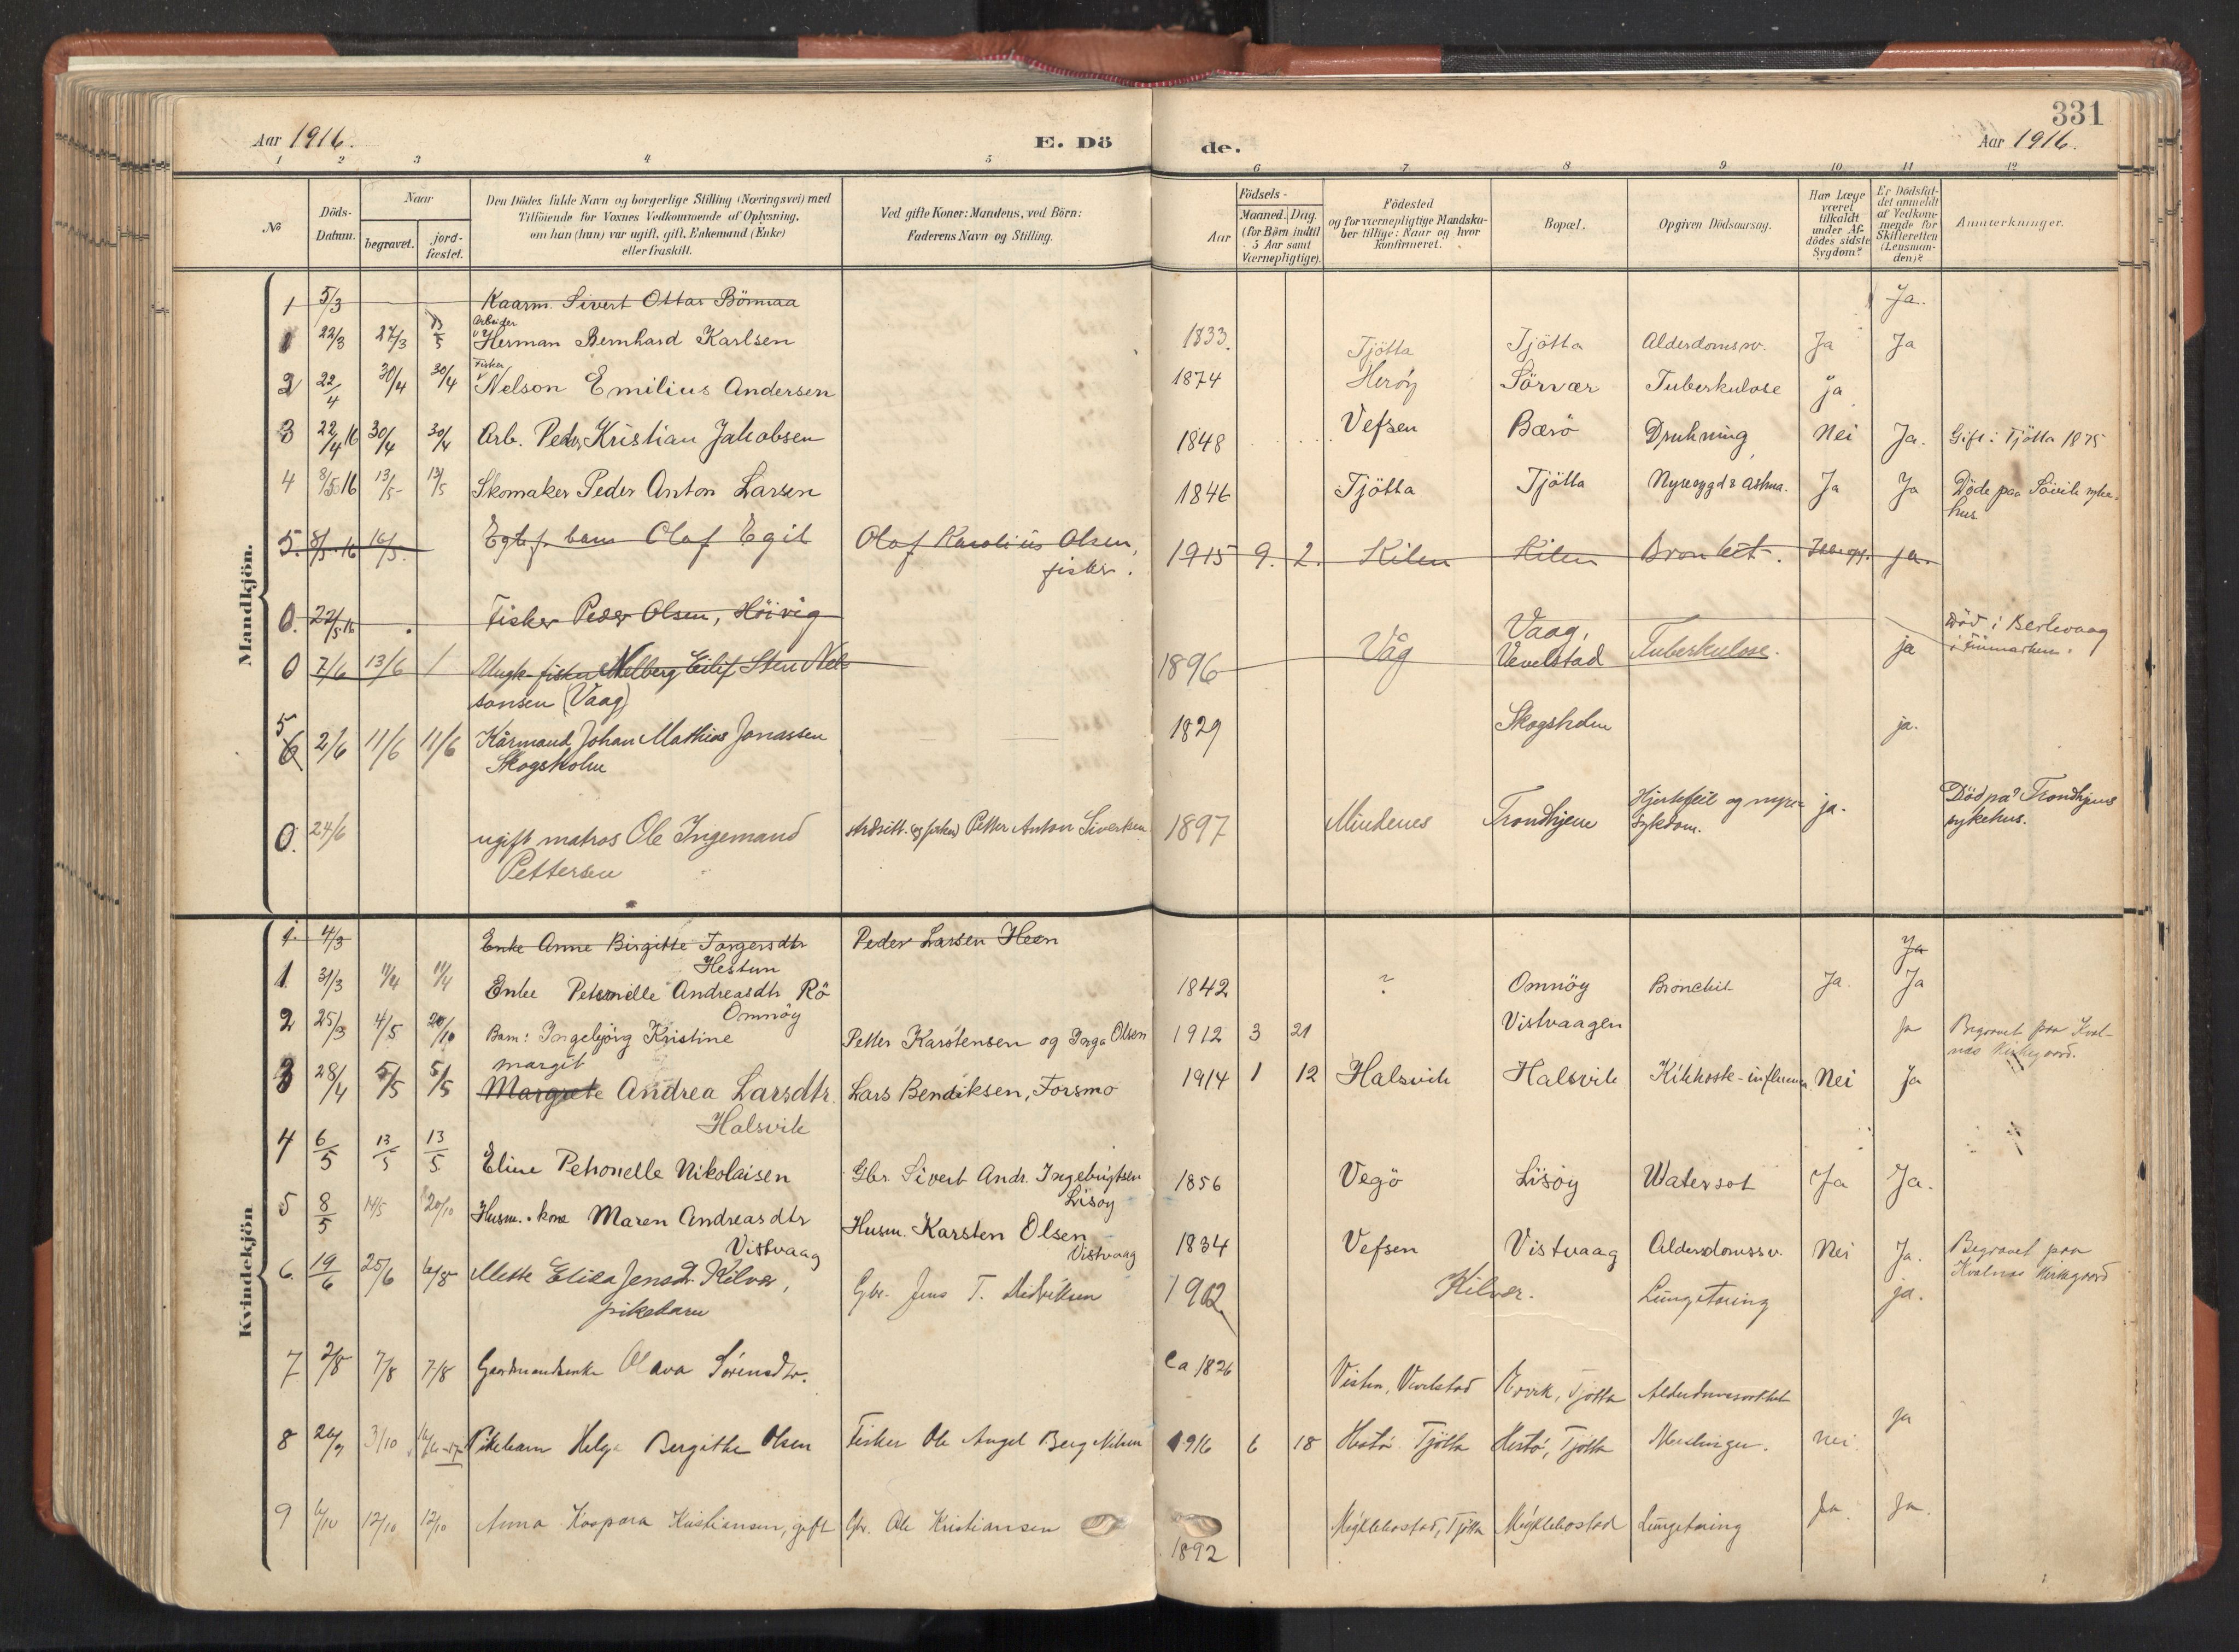 331
Aar 1916.
E. Dö
de.
Aar 1916.
1 2 3 4 5 6 7 8 9 10 11 12
№
Döds-
Datum.
Naar
begravet.
jord-
fæstet.
Den Dödes fulde Navn og borgerlige Stilling (Næringsvei) med
Tilföiende for Voxnes Vedkommende af Oplysning,
om han (hun) var ugift, gift, Enkemand (Enke)
eller fraskilt.
Ved gifte Koner: Mandens, ved Börn:
Faderens Navn og Stilling.
Födsels-
Aar
Maaned. Dag.
(for Börn indtil
5 Aar samt
Værnepligtige).
Födested
og for værnepligtige Mandska-
ber tillige: Naar og hvor
konfirmeret.
Bopæl.
Opgiven Dödsaarsag.
Har Læge
været
tilkaldt
under Af-
dödes sidste
Sygdom?
Er Dödsfal-
det anmeldt
af Vedkom-
mende for
Skifteretten
(Lensman-
den)?
Anmærkninger.
Mandkjön.
1 5/3 Kaarm. Sivert Ottar Bömaa Ja.
Arbeider
1 22/3 27/3 13/5 Herman Bernhard Karlsen 1833. Tjötta Tjötta Alderdomssv. Ja Ja
Fisker
2 22/4 30/4 30/4 Nelson Emilius Andersen 1874 Heröy Sörvær Tuberkulose ja
3 22/4 16 30/4 30/4 Arb. Peder Kristian Jakobsen 1848 Vefsen Bærö Drukning Nei Ja. Gift i Tjötta 1875
4 8/5 16 13/5 13/5 Skomaker Peder Anton Larsen 1846 Tjötta Tjötta Nyresygd & Astma. Ja Ja Döde paa syke-
hus
5. 8/5 16 16/5. Egtef. barn Olaf Egil Olaf Karolius Olsen,
fisker. 1915 9. 2. Kilen Kilen Bronkit. Ikke opg. ja.
0. 22/5 16 Fisker Peder Olsen, Höivig
0 7/6 13/6 Ungk. fisker Nelberg Eilif Sten Nel-
sonsen (Vaag) 1896 Våg Vaag,
Vevelstad Tuberkulose. ja Död i Berlevaag
i Finmarken.
5 6 2/6 11/6 11/6 Kårmand Johan Mathias Jonassen
Skogsholm 1829 Skogsholm ja.
0. 24/6 ugift matros Ole Ingemand
Pettersen (og fisker) Petter Anton Sivertsen 1897 Mindenes Trondhjem Hjertefeil og nyre-
sykdom. ja. Död på Trondhjems
sykehus.
Kvindekjön
1. 4/3 Enke Anne Birgitte Torgersdtr
Hestun Peder Larsen Heen Ja
1. 31/3 11/4 11/4 Enke Petornelle Andreasdtr Rö
Omnöy 1842 ? Omnöy Bronchit Ja. Ja
2 25/3 4/5 20/10 Barn: Ingebjörg Kristine Petter Karstensen og Inga Olsen 1912 3 21 Vistvaagen Ja Begravet paa Kval-
næs Kirkegaard.
margit
3 28/4 5/5 5/5 Margrete Andrea Larsdtr.
Halsvik Lars Bendiksen, Forsmo 1914 1 12 Halsvik Halsvik Kikhoste-influensa Nei Ja
4 6/5 13/5 13/5 Eline Petronelle Nikolaisen Gbr. Sivert Andr. Ingebrigtsen
Lisöy 1856 Vegö Lisöy Watersot Ja Ja.
5 8/5 14/5 20/10 Husm.-kone Maren Andreasdtr
Vistvaag Husm. Karsten Olsen
Vistvaag 1834 Vefsen Vistvaag Alderdomssv. Nei Ja. Begravet paa
Kvalnæs Kirkegaard
6. 19/6 25/6 6/8 Mette Elisa Jensdr. Kilvær,
pikebarn Gbr. Jens T. Didriksen 1902 Kilvær. Lungetæring ja.
7 2/8 7/8 7/8 Gaardmandsenke Olava Sörensdtr. Ca 1826 Visten, Vevelstad Ervik, Tjötta Alderdomssvakhet
8 26/9 3/10 Pikebarn Helga Bergithe Olsen Fisker Ole Angel Berg Nilsen 1916 6 18 Hestö Tjötta Hestö, Tjötta Meslinger. Nei. ja
9 6/10 12/10 12/10 Anna Kaspara Kristiansen, gift Gbr. Ole Kristiansen 1892 Mögklebostad, Tjötta Mögklebostad Lungetæring Ja. Ja.